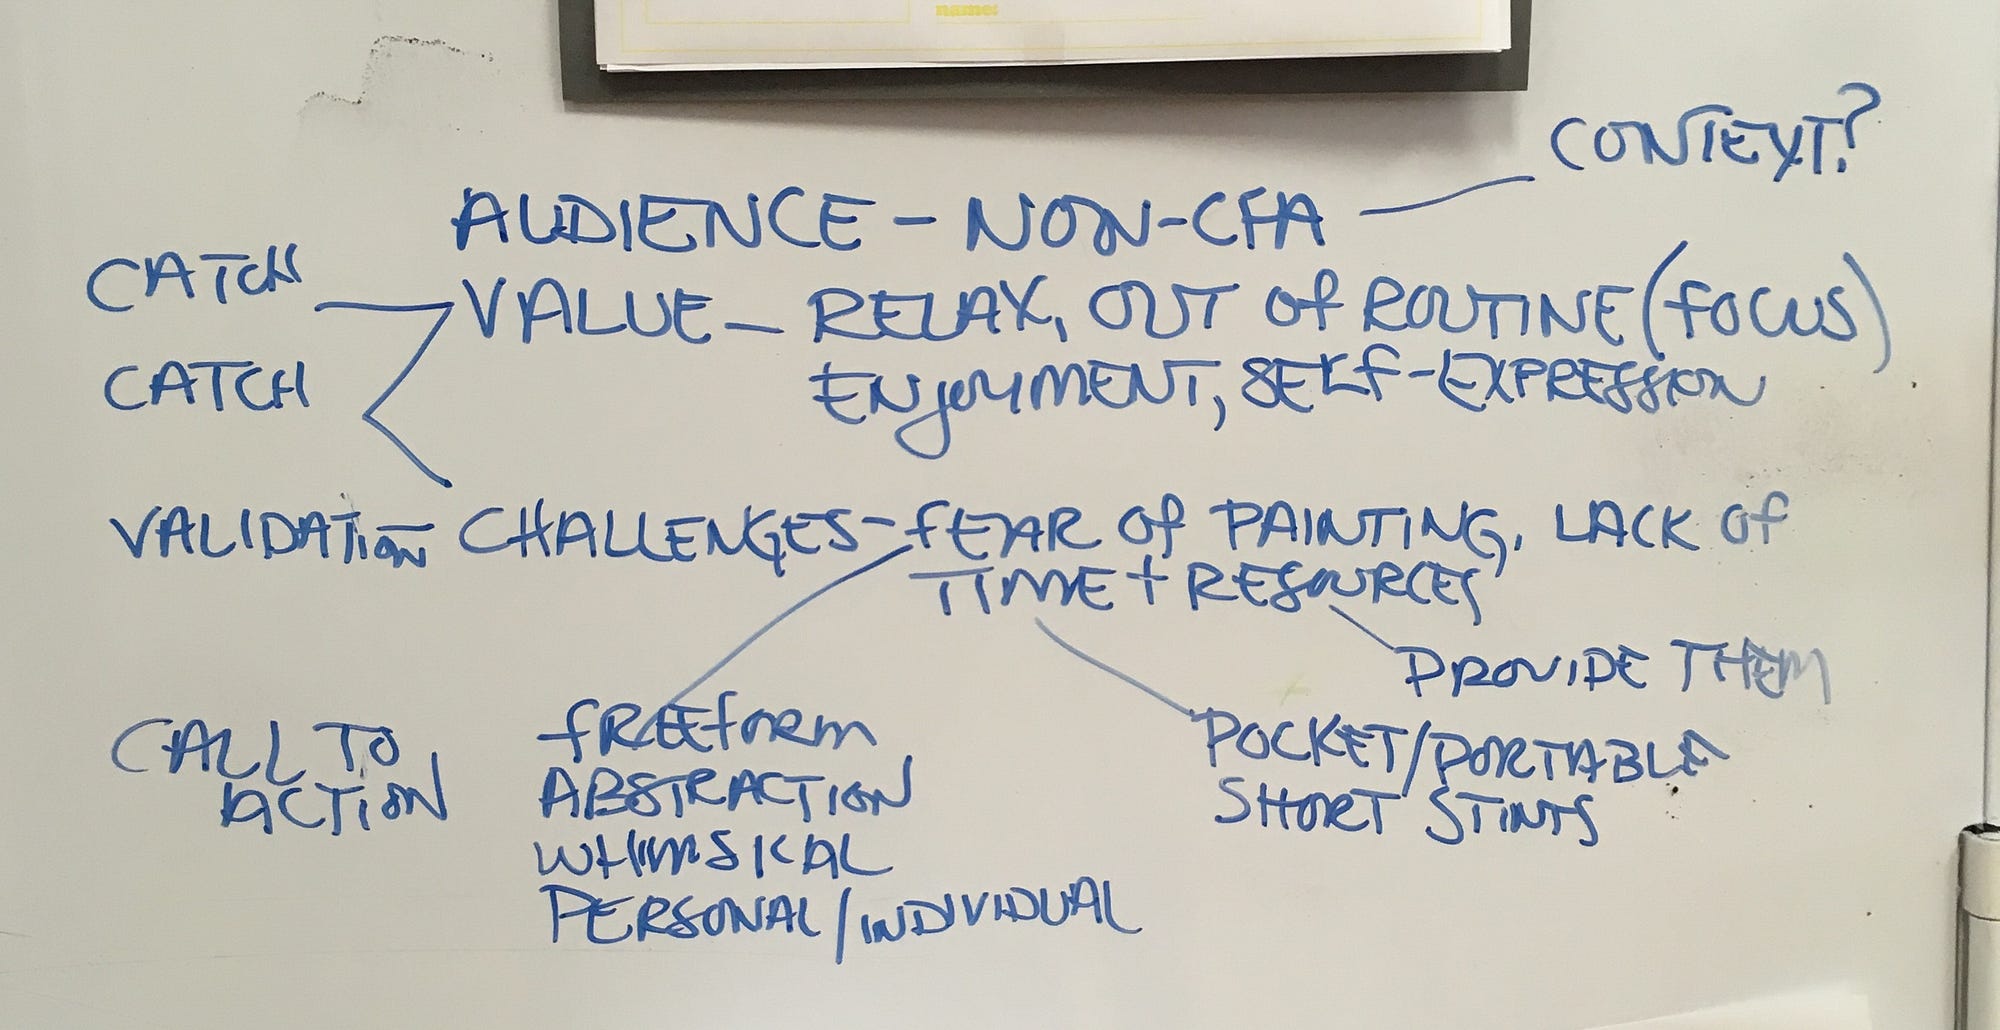 name:
CONTEXT?
AUDIENCE - NON-CFA
CATCH
VALUE - RELAX, OUT Of ROUTINE (fOCUS)
CATCH
ENjOYMENT, SELf-EXPRESSION
VALIDATION
CHALLENGES - fEAR Of PAINTING, LACK Of
TIME + RESOURCES
PROVIDE THEM
CALL TO
ACTION
fREEfORM
ABSTRACTION
WHIMSICAL
PERSONAL/INDIVIDUAL
POCKET/PORTABLE
SHORT STINTS